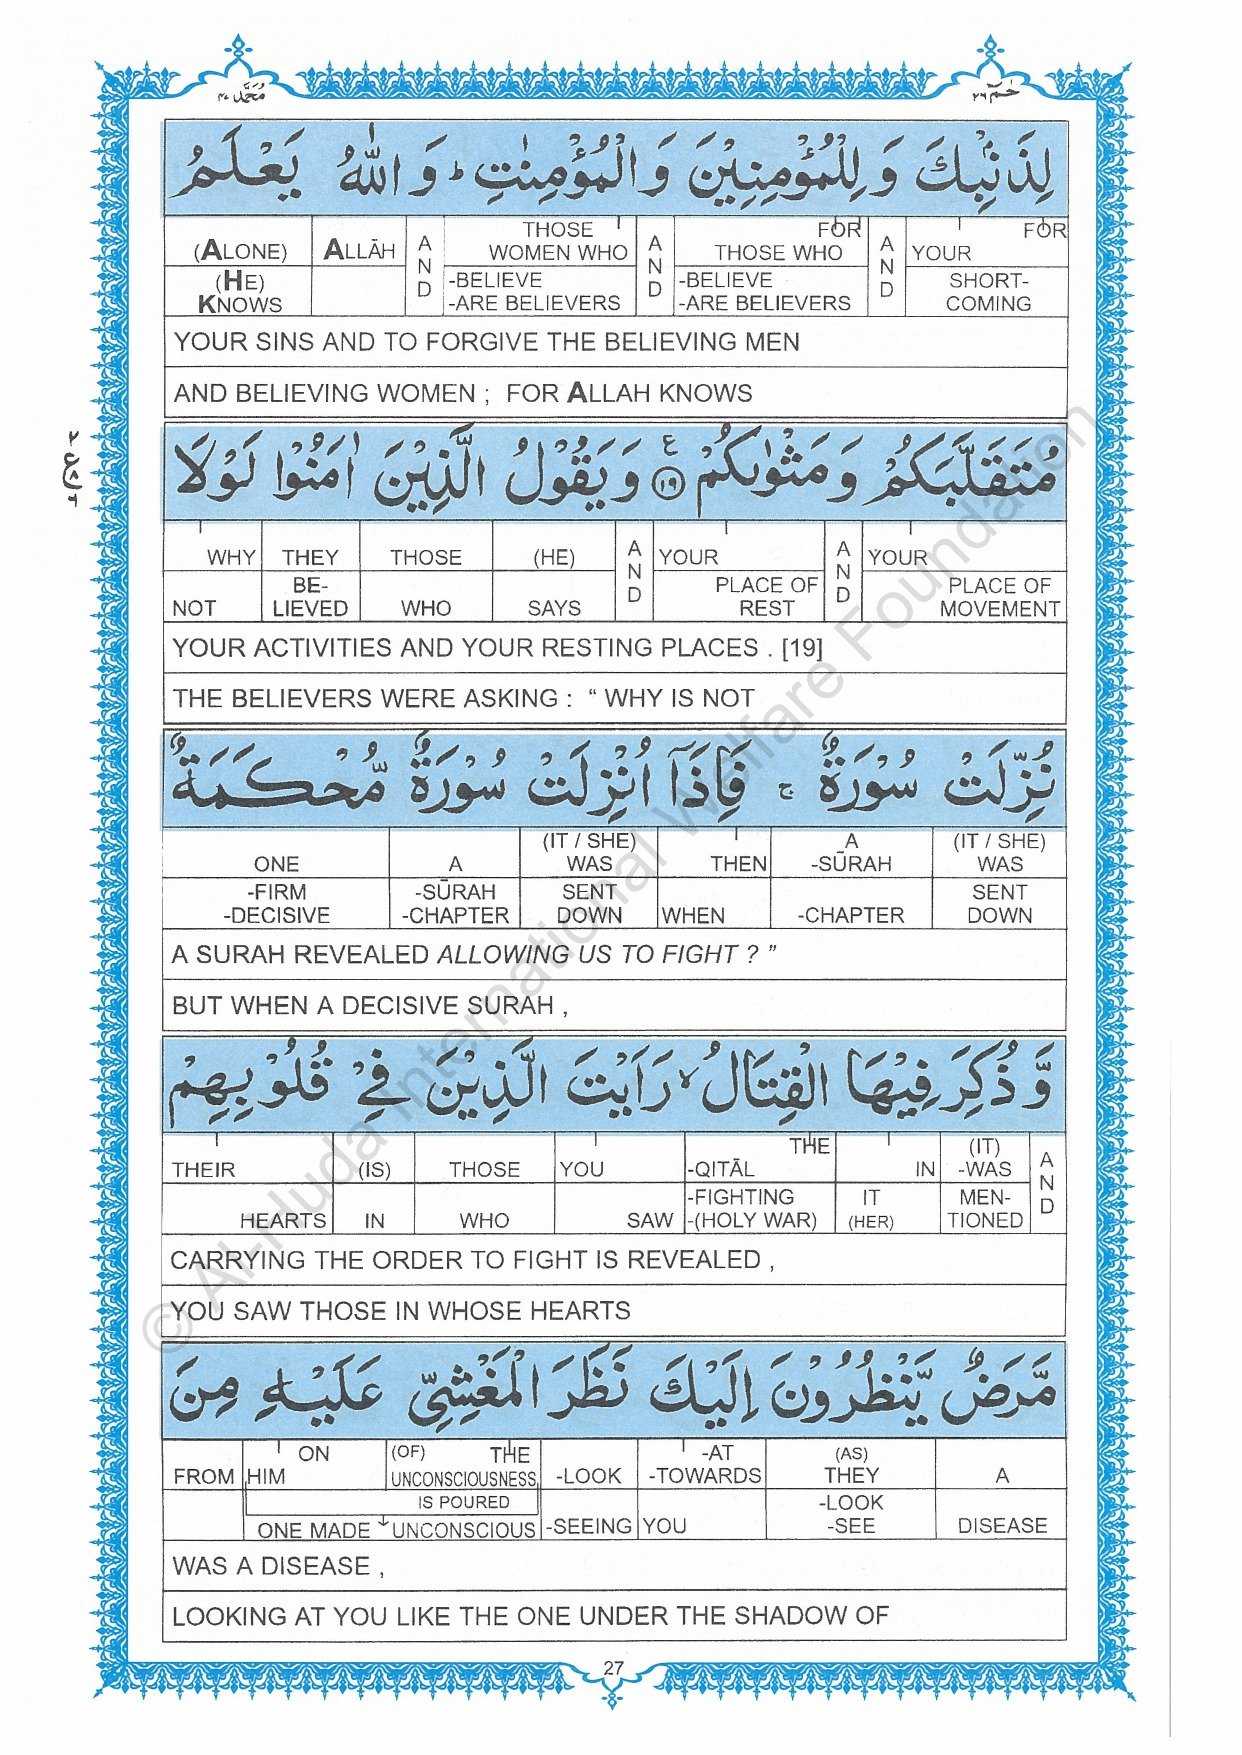 مُحَمَّد ٤٧
حٰمٓ ٢٦
لِذَنْۢبِكَ وَ لِلْمُؤْمِنِيْنَ وَ الْمُؤْمِنٰتِ ؕ وَ اللّٰهُ يَعْلَمُ
(ALONE) ALLĀH AND THOSE WOMEN WHO AND FOR THOSE WHO AND YOUR FOR
(HE) KNOWS -BELIEVE -ARE BELIEVERS -BELIEVE -ARE BELIEVERS SHORT-COMING
YOUR SINS AND TO FORGIVE THE BELIEVING MEN
AND BELIEVING WOMEN ; FOR ALLAH KNOWS
مُتَقَلَّبَكُمْ وَ مَثْوٰىكُمْ ع ١٩ وَ يَقُوْلُ الَّذِيْنَ اٰمَنُوْا لَوْلَا
WHY THEY THOSE (HE) AND YOUR AND YOUR
NOT BE-LIEVED WHO SAYS PLACE OF REST PLACE OF MOVEMENT
YOUR ACTIVITIES AND YOUR RESTING PLACES . [19]
THE BELIEVERS WERE ASKING : “ WHY IS NOT
نُزِّلَتْ سُوْرَةٌ ۚ فَاِذَاۤ اُنْزِلَتْ سُوْرَةٌ مُّحْكَمَةٌ
ONE A (IT / SHE) WAS THEN A -SŪRAH (IT / SHE) WAS
-FIRM -DECISIVE -SŪRAH -CHAPTER SENT DOWN WHEN -CHAPTER SENT DOWN
A SURAH REVEALED ALLOWING US TO FIGHT ? ”
BUT WHEN A DECISIVE SURAH ,
وَّ ذُكِرَ فِيْهَا الْقِتَالُ ۙ رَاَيْتَ الَّذِيْنَ فِيْ قُلُوْبِهِمْ
THEIR (IS) THOSE YOU THE -QITĀL IN (IT) -WAS AND
HEARTS IN WHO SAW -FIGHTING -(HOLY WAR) IT (HER) MEN-TIONED
CARRYING THE ORDER TO FIGHT IS REVEALED ,
YOU SAW THOSE IN WHOSE HEARTS
مَّرَضٌ يَّنْظُرُوْنَ اِلَيْكَ نَظَرَ الْمَغْشِيِّ عَلَيْهِ مِنَ
FROM ON HIM (OF) THE UNCONSCIOUSNESS -LOOK -AT -TOWARDS (AS) THEY A
IS POURED
ONE MADE UNCONSCIOUS -SEEING YOU -LOOK -SEE DISEASE
WAS A DISEASE ,
LOOKING AT YOU LIKE THE ONE UNDER THE SHADOW OF
27
© Al-Huda International Welfare Foundation